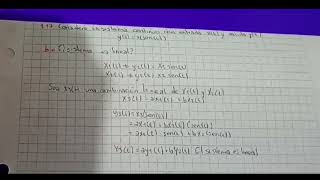 1.17 Considere un sistema continuo con entrada x(t) y salida y(t)
y(t) = x(sen(t))
b.- El sistema es lineal?
x₁(t) → y₁(t) = x₁ sen(t)
x₂(t) → y₂(t) = x₂ sen(t)
Sea x₃(t) una combinación lineal de x₁(t) y x₂(t)
x₃(t) = ax₁(t) + bx₂(t)
y₃(t) = x₃(sen(t))
= ax₁(t) + bx₂(t) (sen(t))
= ax₁(t) sen(t) + bx₂(sen(t))
y₃(t) = ay₁(t) + by₂(t) El sistema es lineal